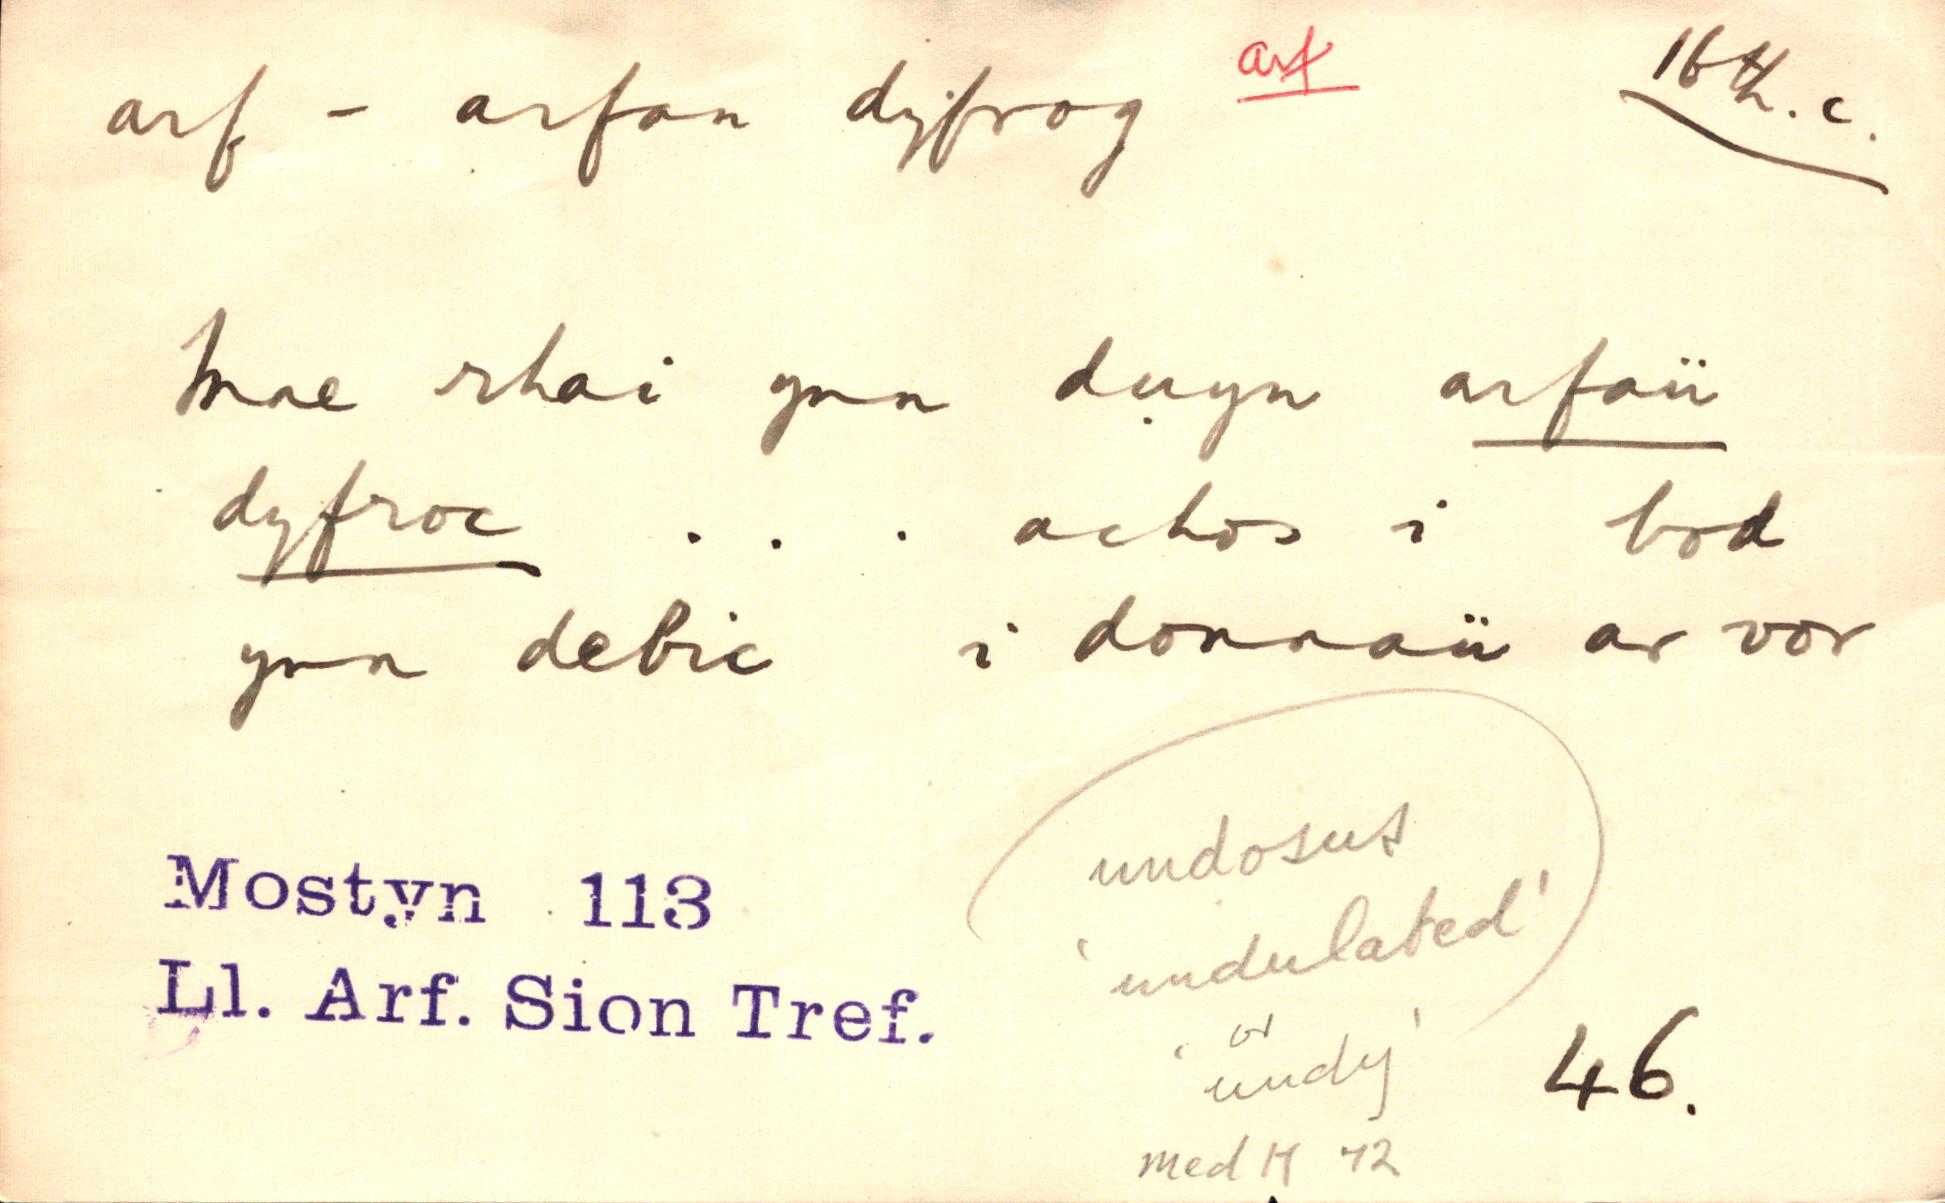 arf - arfau dyfrog arf 16th. c.
Mae rhai ynn dụyn arfaü
dyfroc . . . achos i bod
ynn debic i donnaü ar vor
undosus
'undulated'
or
'undy'
Mostyn 113
Ll. Arf. Sion Tref.
46.
Med H 72